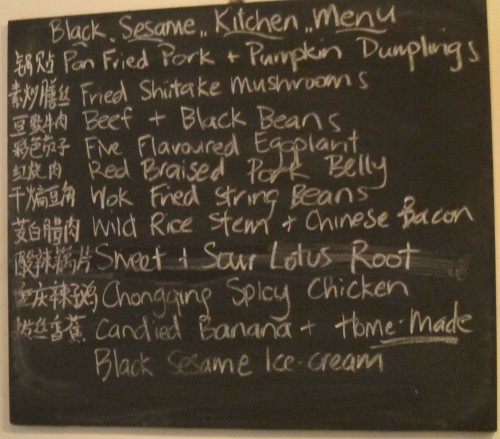 Black Sesame Kitchen Menu
锅贴 Pan Fried Pork + Pumpkin Dumplings
素炒膳丝 Fried Shiitake Mushrooms
豆豉牛肉 Beef + Black Beans
茄子 Five Flavoured Eggplant
红烧肉 Red Braised Pork Belly
干煸豆角 Wok Fried String Beans
茭白腊肉 Wild Rice Stem + Chinese Bacon
酸辣藕片 Sweet + Sour Lotus Root
重庆辣子鸡 Chongqing Spicy Chicken
拔丝香蕉 Candied Banana + Home-Made
Black Sesame Ice-cream